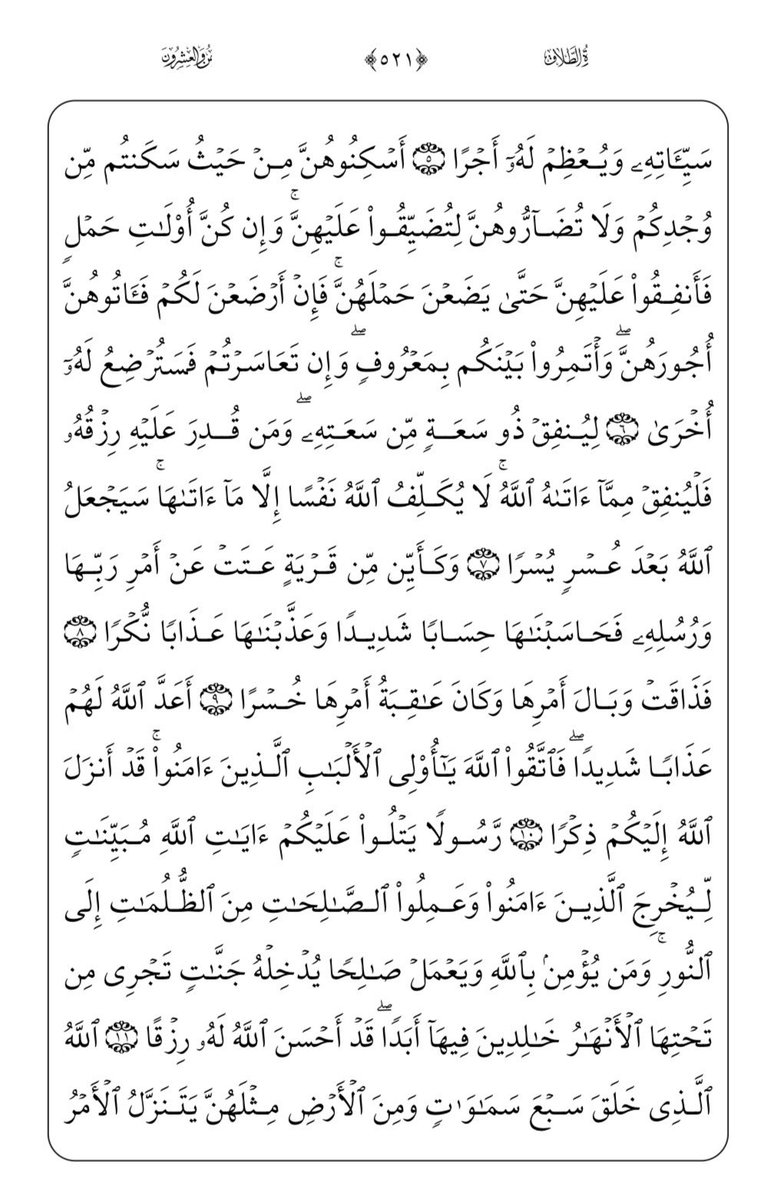 ةُ الطَّلَاقِ ﴿٥٢١﴾ نُ وَالعِشْرُونَ
سَيِّـَٔاتِهِۦ وَيُعْظِمْ لَهُۥٓ أَجْرًا ٥ أَسْكِنُوهُنَّ مِنْ حَيْثُ سَكَنتُم مِّن
وُجْدِكُمْ وَلَا تُضَآرُّوهُنَّ لِتُضَيِّقُوا۟ عَلَيْهِنَّ ۚ وَإِن كُنَّ أُو۟لَٰتِ حَمْلٍ
فَأَنفِقُوا۟ عَلَيْهِنَّ حَتَّىٰ يَضَعْنَ حَمْلَهُنَّ ۚ فَإِنْ أَرْضَعْنَ لَكُمْ فَـَٔاتُوهُنَّ
أُجُورَهُنَّ ۖ وَأْتَمِرُوا۟ بَيْنَكُم بِمَعْرُوفٍ ۖ وَإِن تَعَاسَرْتُمْ فَسَتُرْضِعُ لَهُۥٓ
أُخْرَىٰ ٦ لِيُنفِقْ ذُو سَعَةٍ مِّن سَعَتِهِۦ ۖ وَمَن قُدِرَ عَلَيْهِ رِزْقُهُۥ
فَلْيُنفِقْ مِمَّآ ءَاتَىٰهُ ٱللَّهُ ۚ لَا يُكَلِّفُ ٱللَّهُ نَفْسًا إِلَّا مَآ ءَاتَىٰهَا ۚ سَيَجْعَلُ
ٱللَّهُ بَعْدَ عُسْرٍ يُسْرًا ٧ وَكَأَيِّن مِّن قَرْيَةٍ عَتَتْ عَنْ أَمْرِ رَبِّهَا
وَرُسُلِهِۦ فَحَاسَبْنَٰهَا حِسَابًا شَدِيدًا وَعَذَّبْنَٰهَا عَذَابًا نُّكْرًا ٨
فَذَاقَتْ وَبَالَ أَمْرِهَا وَكَانَ عَٰقِبَةُ أَمْرِهَا خُسْرًا ٩ أَعَدَّ ٱللَّهُ لَهُمْ
عَذَابًا شَدِيدًا ۖ فَٱتَّقُوا۟ ٱللَّهَ يَٰٓأُو۟لِى ٱلْأَلْبَٰبِ ٱلَّذِينَ ءَامَنُوا۟ ۚ قَدْ أَنزَلَ
ٱللَّهُ إِلَيْكُمْ ذِكْرًا ١٠ رَّسُولًا يَتْلُوا۟ عَلَيْكُمْ ءَايَٰتِ ٱللَّهِ مُبَيِّنَٰتٍ
لِّيُخْرِجَ ٱلَّذِينَ ءَامَنُوا۟ وَعَمِلُوا۟ ٱلصَّٰلِحَٰتِ مِنَ ٱلظُّلُمَٰتِ إِلَى
ٱلنُّورِ ۚ وَمَن يُؤْمِنۢ بِٱللَّهِ وَيَعْمَلْ صَٰلِحًا يُدْخِلْهُ جَنَّٰتٍ تَجْرِى مِن
تَحْتِهَا ٱلْأَنْهَٰرُ خَٰلِدِينَ فِيهَآ أَبَدًا ۖ قَدْ أَحْسَنَ ٱللَّهُ لَهُۥ رِزْقًا ١١ ٱللَّهُ
ٱلَّذِى خَلَقَ سَبْعَ سَمَٰوَٰتٍ وَمِنَ ٱلْأَرْضِ مِثْلَهُنَّ يَتَنَزَّلُ ٱلْأَمْرُ